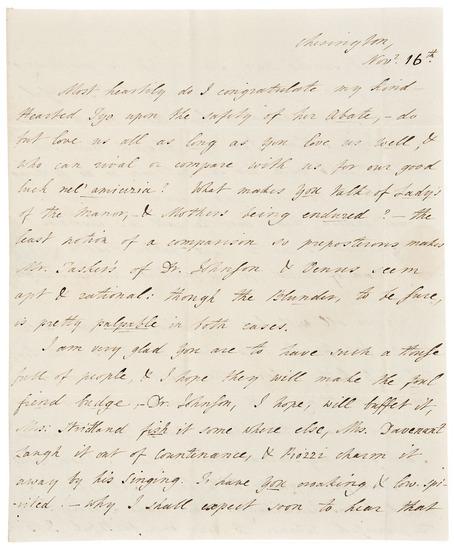 Chesington,
Novr. 16th.
Most heartily do I congratulate my kind-
Hearted Tyo upon the safety of her Abate, – do
but love us all as long as you love us well, &
who can rival or compare with us for our good
luck nel' amicizia? What makes you talk of Lady's
of the Manor, & Mothers being endured? – the
least notion of a comparison so preposterous makes
Mr. Tasker's of Dr. Johnson & Venus seem
apt & rational: though the Blunder, to be sure,
is pretty palpable in both cases.
I am very glad you are to have such a House
full of people, & I hope they will make the foul
fiend budge, – Dr. Johnson, I hope, will buffet it,
Mrs: Strickland fish it some where else, Mrs. Davenant
Laugh it out of Countenance, & Piozzi charm it
away by his Singing. To have you croaking & low-spi-
rited! – why I shall expect soon to hear that